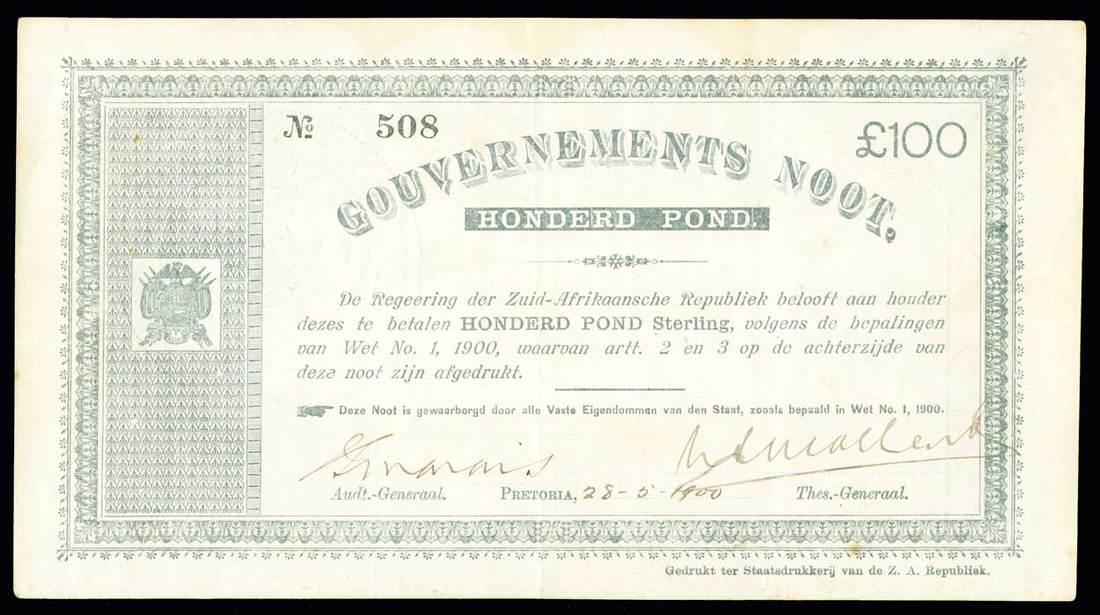 № 508
£100
GOUVERNEMENTS NOOT.
HONDERD POND.
De Regeering der Zuid-Afrikaansche Republiek belooft aan houder
dezes te betalen HONDERD POND Sterling, volgens de bepalingen
van Wet No. 1, 1900, waarvan artt. 2 en 3 op de achterzijde van
deze noot zijn afgedrukt.
Deze Noot is gewaarborgd door alle Vaste Eigendommen van den Staat, zooals bepaald in Wet No. 1, 1900.
Audt.-Generaal. PRETORIA, 28-5-1900 Thes.-Generaal.
Gedrukt ter Staatsdrukkerij van de Z. A. Republiek.